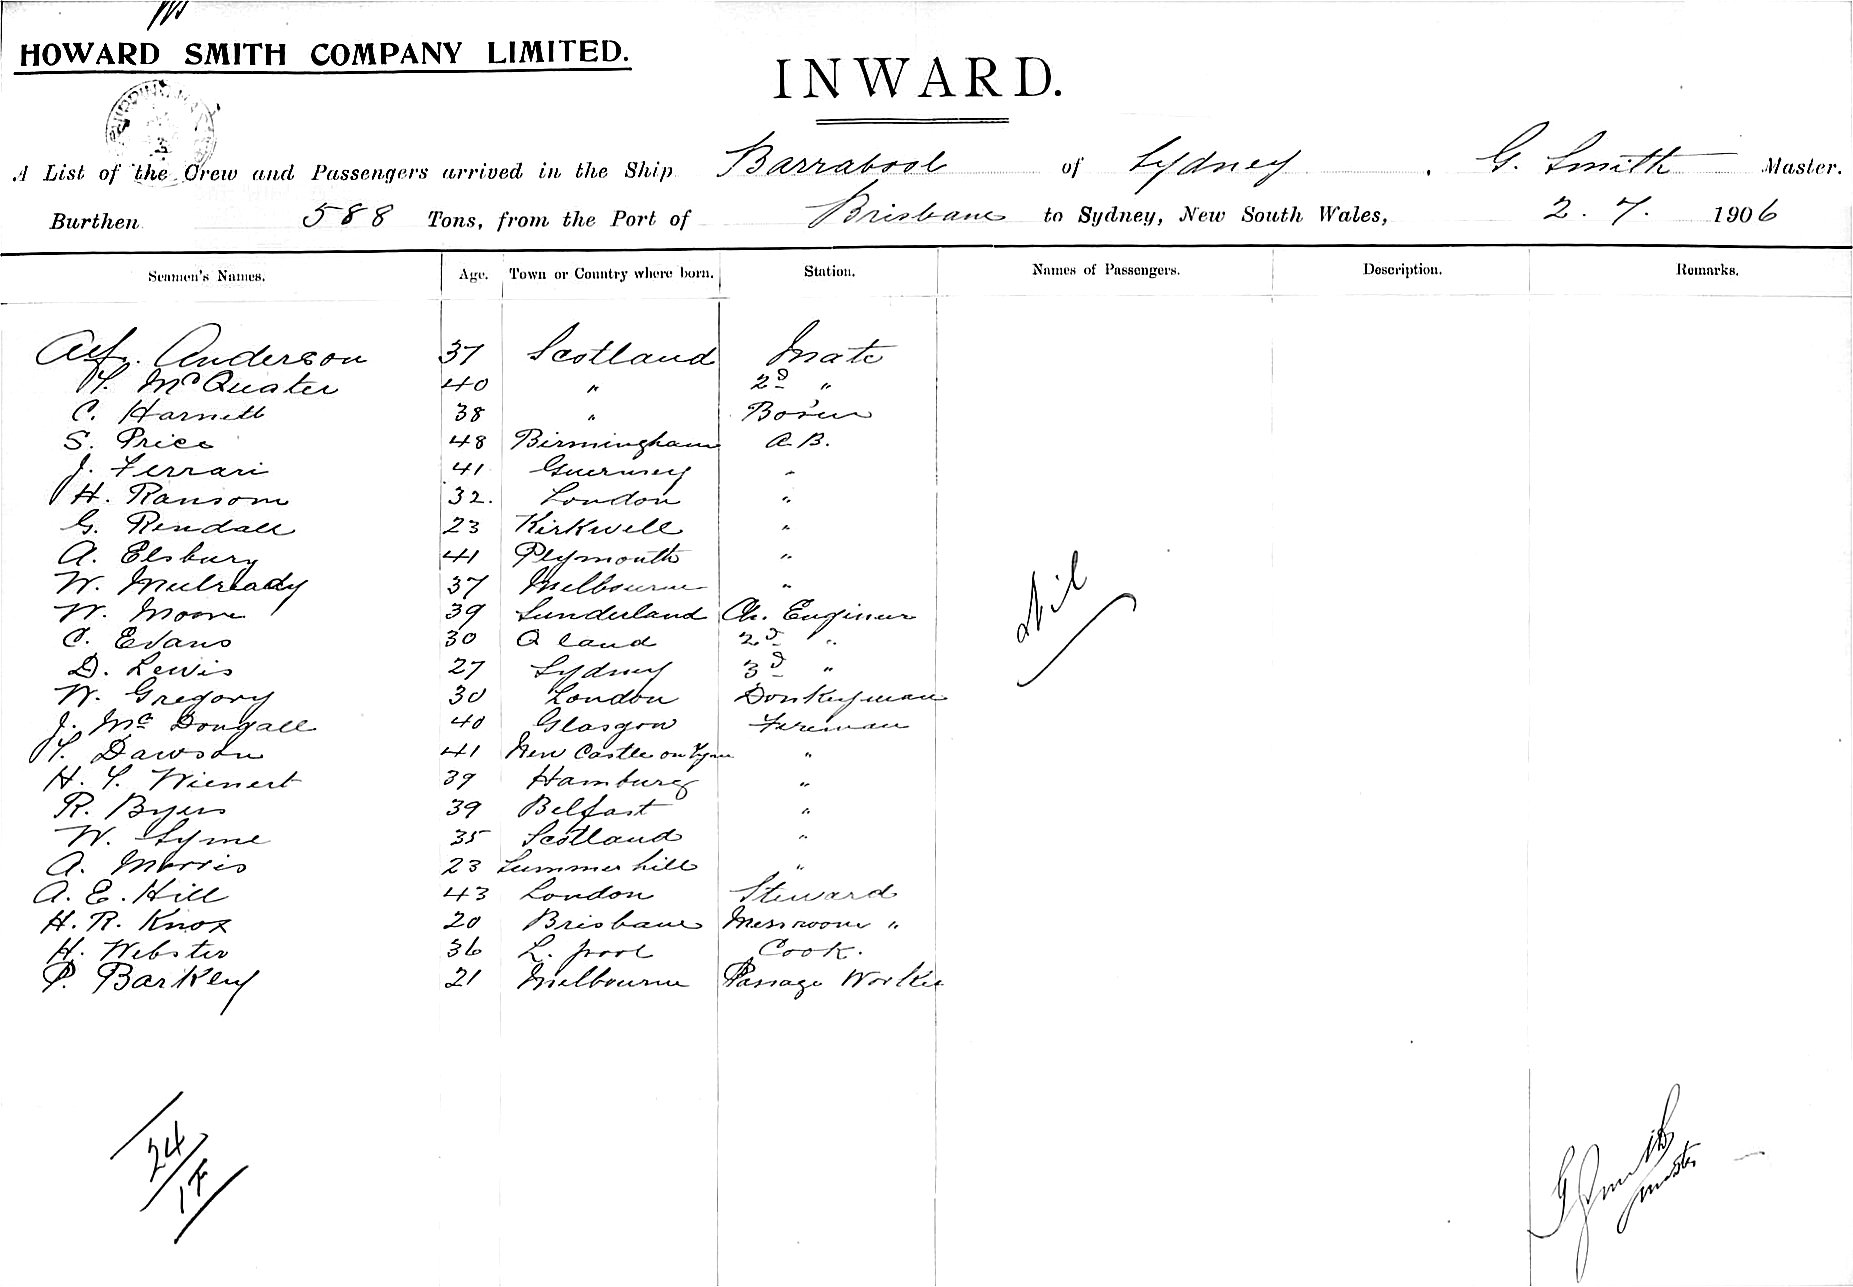 HOWARD SMITH COMPANY LIMITED.
INWARD.
A List of the Crew and Passengers arrived in the Ship Barrabool of Sydney, G. Smith Master.
Burthen 588 Tons, from the Port of Brisbane to Sydney, New South Wales, 2. 7. 1906
Seamen's Names. Age. Town or Country where born. Station. Names of Passengers. Description. Remarks.
Alf. Anderson 37 Scotland Mate
T. McQuater 40 " 2d "
C. Harnett 38 " Bo'sun
S. Price 48 Birmingham A.B.
J. Ferrari 41 Guernsey "
H. Ransom 32. London "
G. Rendall 23 Kirkwell "
A. Elsbury 41 Plymouth "
W. Mulready 37 Melbourne "
W. Moore 39 Sunderland Ch. Engineer
C. Evans 30 Q land 2d "
D. Lewis 27 Sydney 3d "
W. Gregory 30 London Donkeyman
J. Mc Dougall 40 Glasgow Fireman
T. Dawson 41 New Castle on Tyne "
H. T. Wienert 39 Hamburg "
R. Byers 39 Belfast "
W. Syme 35 Scotland "
A. Morris 23 Summer hill "
A. E. Hill 43 London Steward
H. R. Knox 20 Brisbane Messroom "
H. Webster 36 L. pool Cook.
P. Barkey 21 Melbourne Passage Worker
Nil
24
G Smith
Master